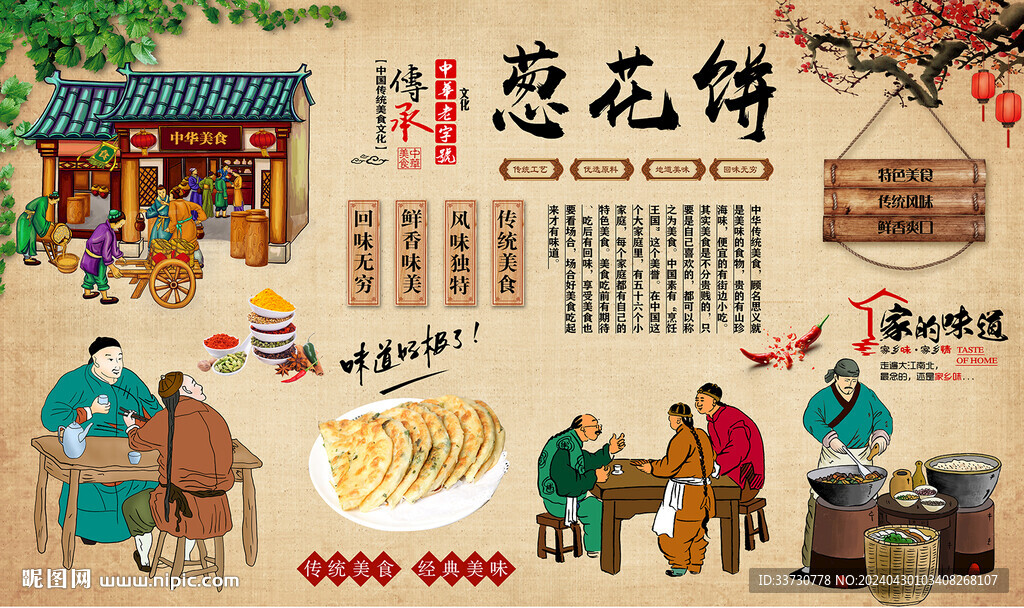 葱花饼
文化
中华老字號
傳承
中華美食
【中国传统美食文化】
传统工艺
优选原料
地道美味
回味无穷
中华美食
特色美食
传统风味
鲜香爽口
传统美食
风味独特
鲜香味美
回味无穷
中华传统美食，顾名思义就
是美味的食物，贵的有山珍
海味，便宜的有街边小吃。
其实美食是不分贵贱的，只
要是自己喜欢的，都可以称
之为美食。中国素有“烹饪
王国。这个美誉。在中国这
个大家庭里，有五十六个小
家庭，每个家庭都有自己的
特色美食。美食吃前有期待
、吃后有回味，享受美食也
要看场合，场合好美食吃起
来才有味道。
味道好极了！
家的味道
家乡味·家乡情
TASTE
OF HOME
走遍大江南北，
最念的，还是家乡味...
传统美食
经典美味
昵图网 www.nipic.com
ID:33730778 NO:20240430103408268107